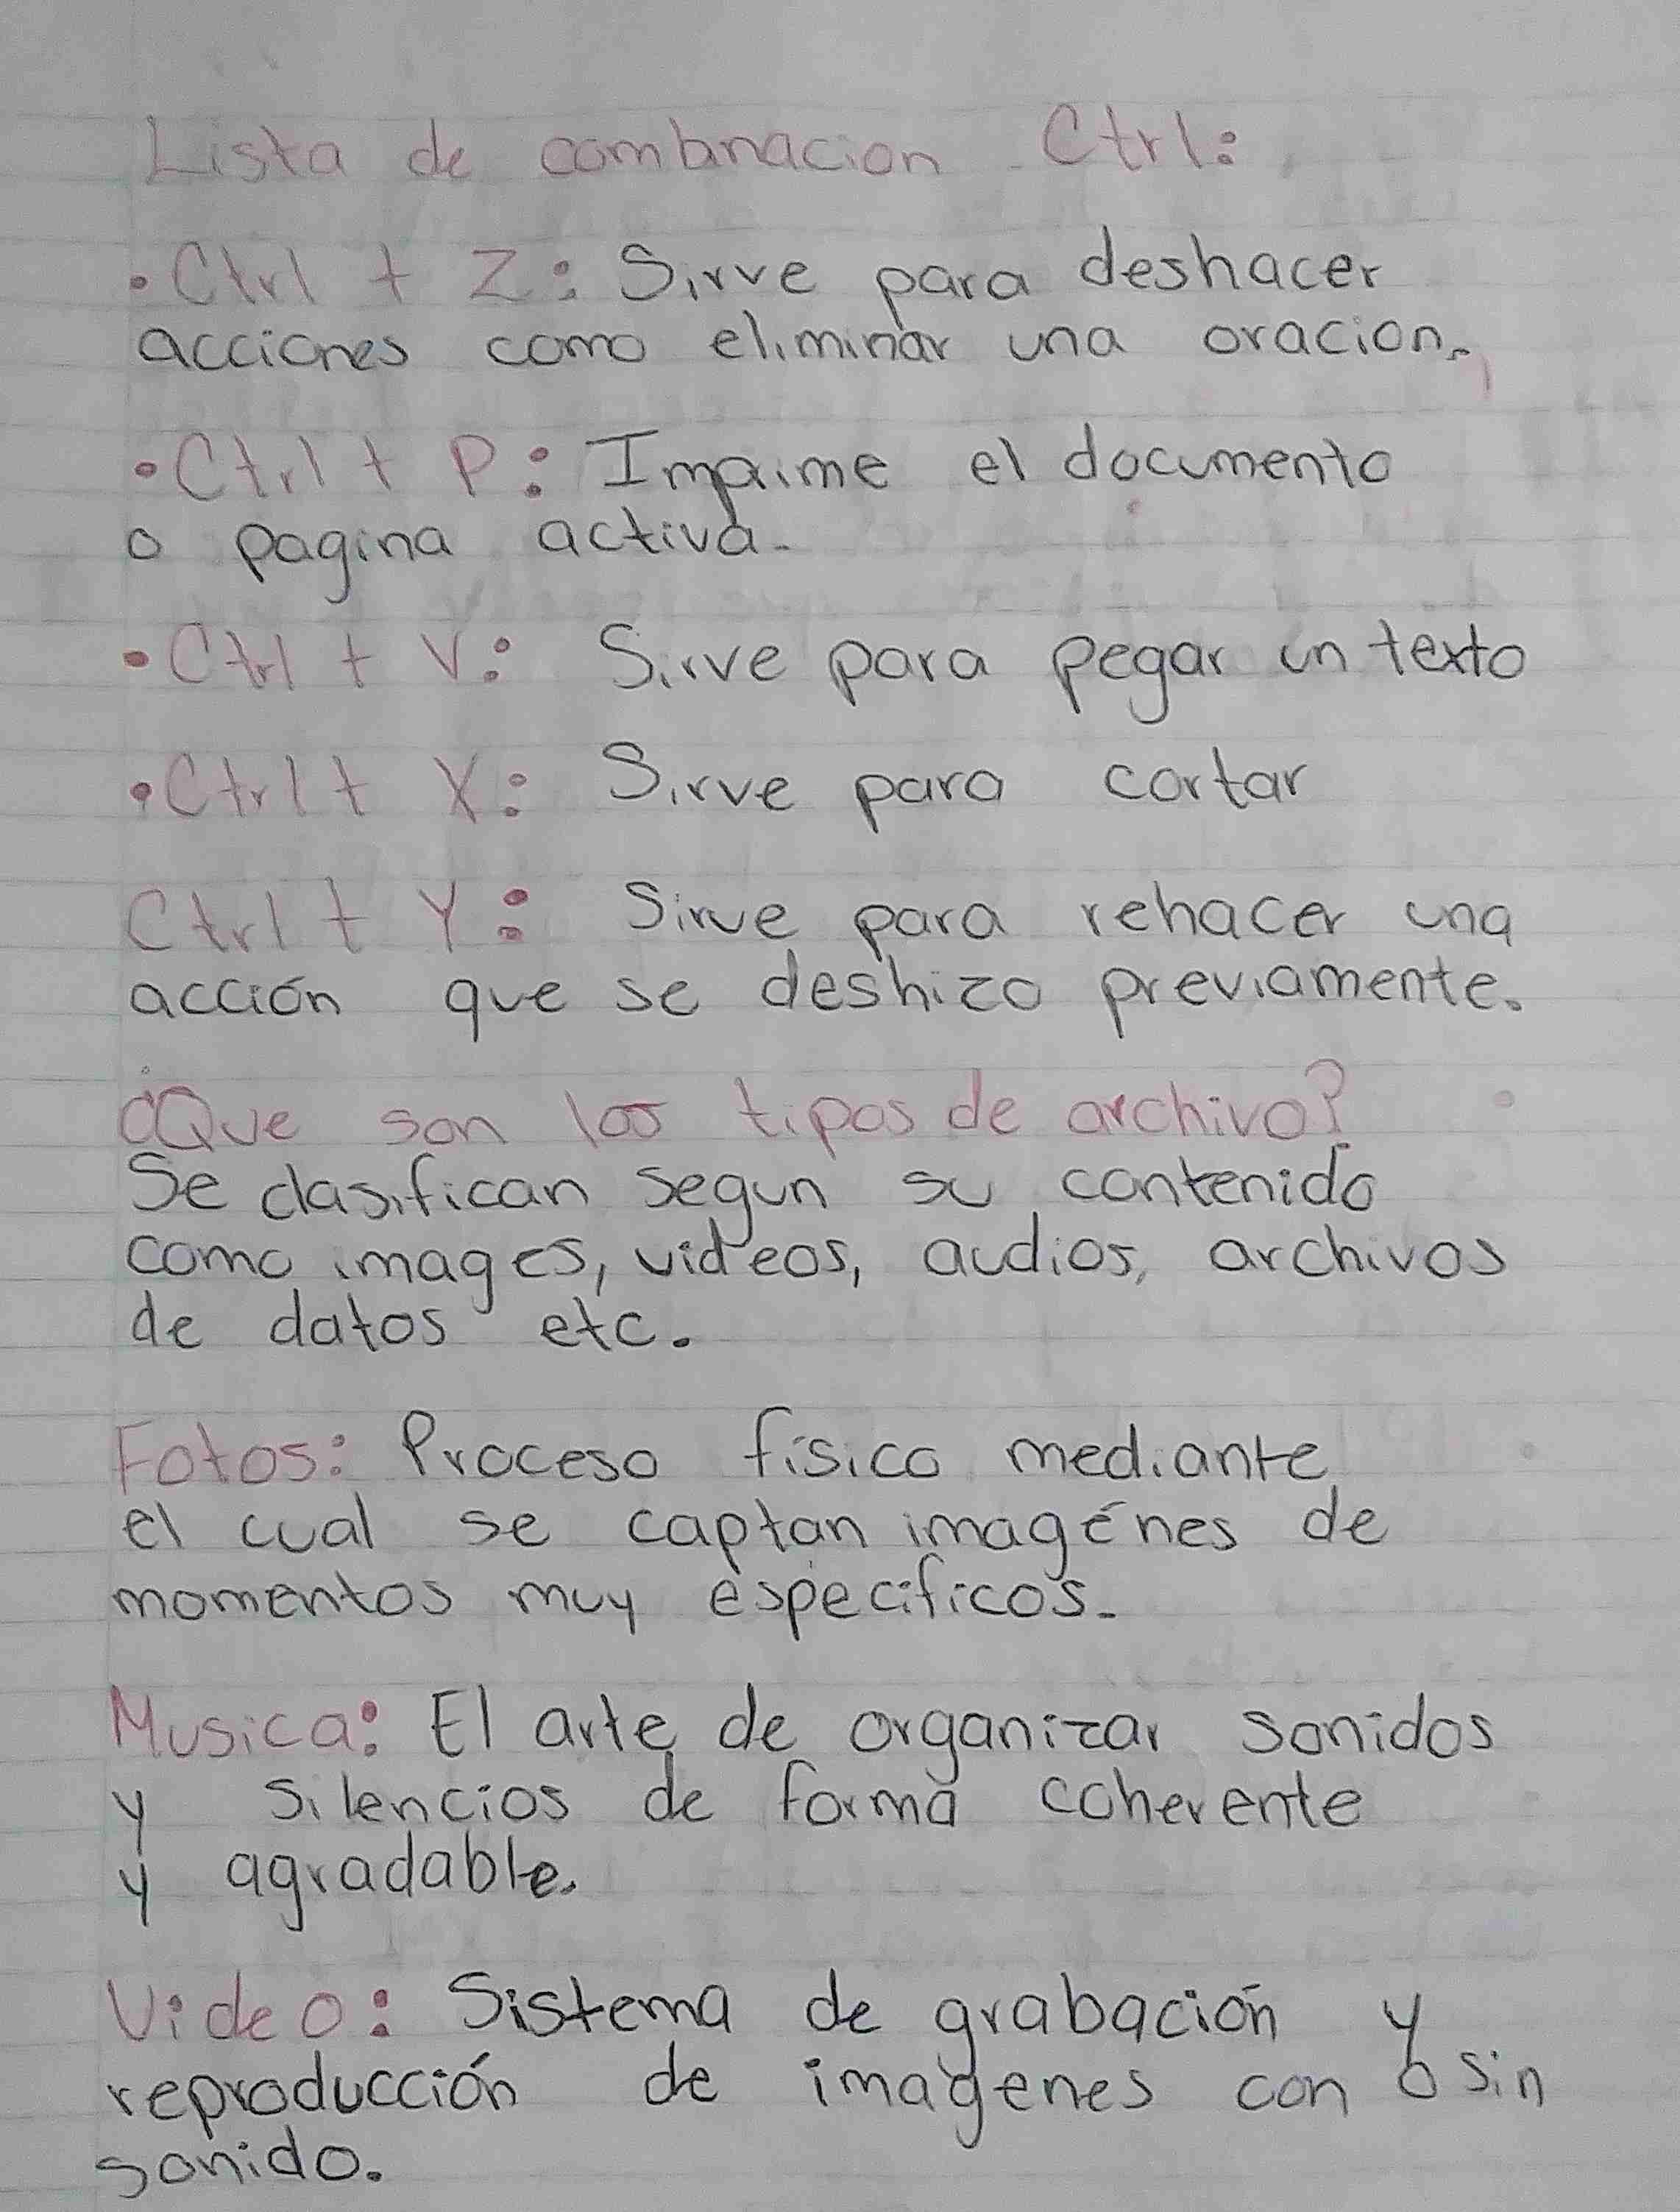 Lista de combinacion Ctrl:
• Ctrl + Z: Sirve para deshacer
acciones como eliminar una oracion.
• Ctrl + P: Imprime el documento
o pagina activa.
• Ctrl + V: Sirve para pegar un texto
• Ctrl + X: Sirve para cortar
Ctrl + Y: Sirve para rehacer una
acción que se deshizo previamente.
¿Que son los tipos de archivo?
Se clasifican segun su contenido
como images, videos, audios, archivos
de datos etc.
Fotos: Proceso físico mediante
el cual se captan imagénes de
momentos muy especificos.
Musica: El arte de organizar sonidos
y silencios de forma coherente
y agradable.
Video: Sistema de grabación y
reproducción de imagenes con o sin
sonido.